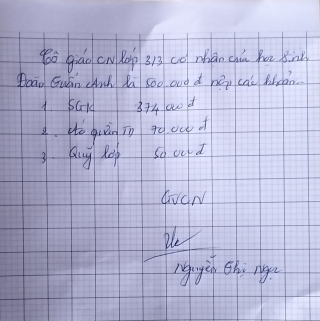 Cô giáo CN lớp 3/3 có nhận của học sinh
Đoàn Tuấn Anh là 500.000 đ nộp các khoản
1 SGK 374 000 đ
2. áo quần TD 70.000 đ
3. Quỹ lớp 50 000 đ
GVCN
Nguyễn Thị Nga